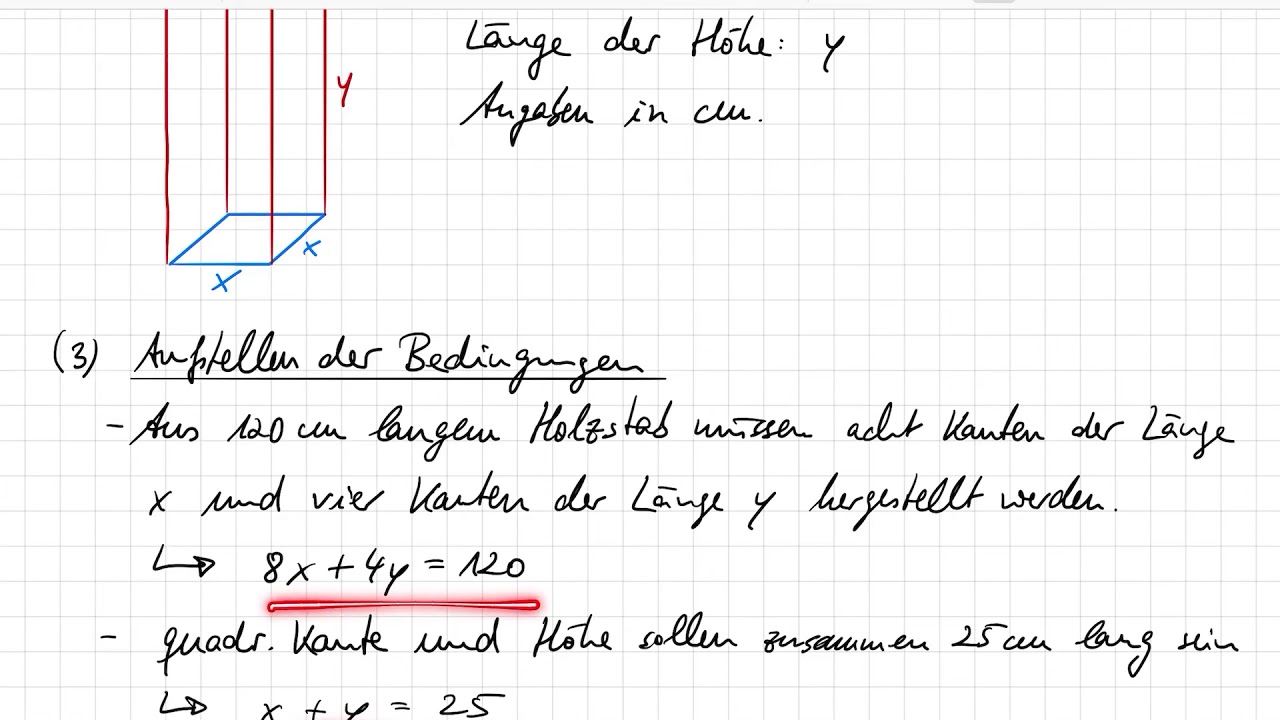 Länge der Höhe: y
y
Angaben in cm.
x
x
(3) Aufstellen der Bedingungen
- Aus 120 cm langem Holzstab müssen acht Kanten der Länge
x und vier Kanten der Länge y hergestellt werden.
↳ 8x + 4y = 120
- quadr. Kante und Höhe sollen zusammen 25 cm lang sein
↳ x + y = 25